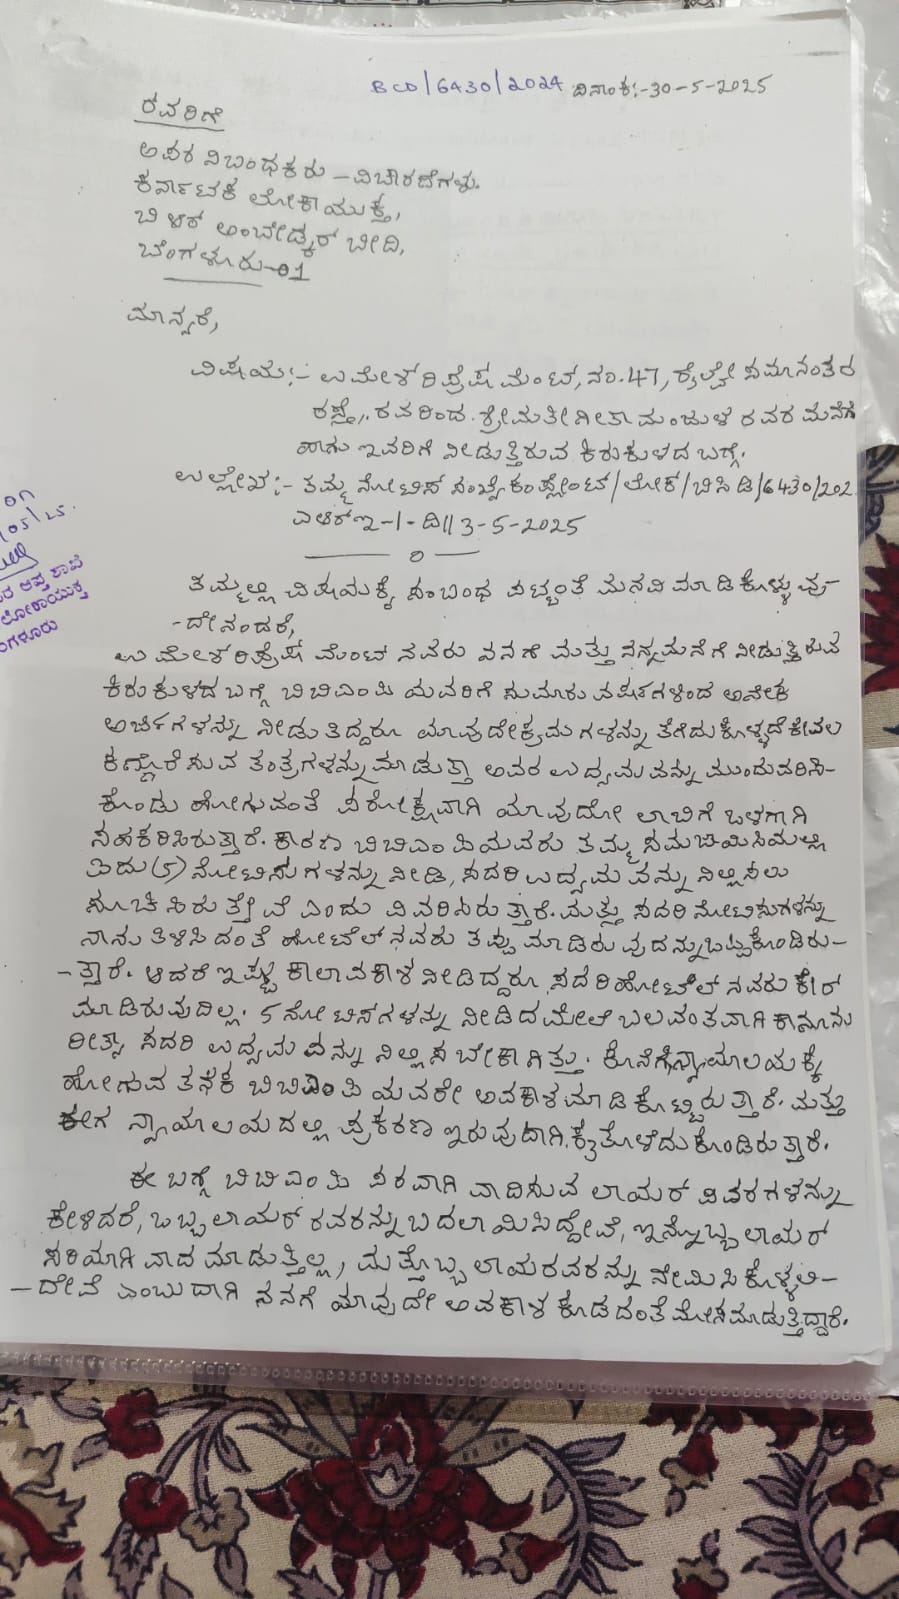 BCD/6430/2024 ದಿನಾಂಕ:-30-5-2025
ರವರಿಗೆ
ಅಪರ ನಿಬಂಧಕರು - ವಿಚಾರಣೆಗಳು.
ಕರ್ನಾಟಕ ಲೋಕಾಯುಕ್ತ,
ಅಂಬೇಡ್ಕರ್ ಬೀದಿ,
ಬೆಂಗಳೂರು-01
ಮಾನ್ಯರೆ,
ವಿಷಯ:- ಉಮೇಶ್ ರಿಫ್ರೆಷ್ ಮೆಂಟ್, ನಂ.47, ರೈಲ್ವೇ ಸಮಾನಂತರ
ರಸ್ತೆ, ರವರಿಂದ ಶ್ರೀಮತೀ ಗೀತಾ ಮಂಜುಳ ರವರ ಮನೆಗೆ
ಹಾಗು ಇವರಿಗೆ ನೀಡುತ್ತಿರುವ ಕಿರುಕುಳದ ಬಗ್ಗೆ.
ಉಲ್ಲೇಖ:- ತಮ್ಮ ನೋಟಿಸ್ ಸಂಖ್ಯೆ ಕಂಪ್ಲೇಂಟ್/ಲೋಕ್/ಬಿಸಿಡಿ/6430/202
ಎಆರ್ಇ-1-ದಿ||3-5-2025
0
on
/05/25
ಆಪ್ತ ಶಾಖೆ
ಲೋಕಾಯುಕ್ತ
ಗಳೂರು
ತಮ್ಮಲ್ಲಿ ವಿಷಯಕ್ಕೆ ಸಂಬಂಧ ಪಟ್ಟಂತೆ ಮನವಿ ಮಾಡಿಕೊಳ್ಳುವು-
-ದೇನಂದರೆ,
ಉಮೇಶ್ ರಿಫ್ರೆಷ್ ಮೆಂಟ್ ನವರು ನನಗೆ ಮತ್ತು ನನ್ನ ಮನೆಗೆ ನೀಡುತ್ತಿರುವ
ಕಿರುಕುಳದ ಬಗ್ಗೆ ಬಿಬಿಎಂಪಿ ಯವರಿಗೆ ಸುಮಾರು ವರ್ಷಗಳಿಂದ ಅನೇಕ
ಅರ್ಜಿಗಳನ್ನು ನೀಡುತಿದ್ದರೂ ಯಾವುದೇ ಕ್ರಮಗಳನ್ನು ತೆಗೆದುಕೊಳ್ಳದೆ ಕೇವಲ
ಕಣ್ಣೊರೆಸುವ ತಂತ್ರಗಳನ್ನು ಮಾಡುತ್ತಾ ಅವರ ಉದ್ಯಮವನ್ನು ಮುಂದುವರಿಸಿ-
ಕೊಂಡು ಹೋಗುವಂತೆ ಪರೋಕ್ಷವಾಗಿ ಯಾವುದೋ ಲಾಬಿಗೆ ಒಳಗಾಗಿ
ಸಹಕರಿಸಿರುತ್ತಾರೆ. ಕಾರಣ ಬಿಬಿಎಂಪಿಯವರು ತಮ್ಮ
ಐದು(5) ನೋಟಿಸುಗಳನ್ನು ನೀಡಿ, ಸದರಿ ಉದ್ಯಮವನ್ನು ನಿಲ್ಲಿಸಲು
ಸೂಚಿಸಿರುತ್ತೇವೆ ಎಂದು ವಿವರಿಸಿರುತ್ತಾರೆ. ಮತ್ತು ಸದರಿ ನೋಟಿಸುಗಳನ್ನು
ನಾನು ತಿಳಿಸಿದಂತೆ ಹೋಟೆಲ್ ನವರು ತಪ್ಪು ಮಾಡಿರುವುದನ್ನು ಒಪ್ಪಿಕೊಂಡಿರು-
-ತ್ತಾರೆ. ಆದರೆ ಇಷ್ಟು ಕಾಲಾವಕಾಶ ನೀಡಿದ್ದರೂ ಸದರಿ ಹೋಟೆಲ್ ನವರು ಕೇರ್
ಮಾಡಿರುವುದಿಲ್ಲ. 5 ನೋಟಿಸ್‌ಗಳನ್ನು ನೀಡಿದ ಮೇಲೆ ಬಲವಂತವಾಗಿ ಕಾನೂನು
ರೀತ್ಯಾ ಸದರಿ ಉದ್ಯಮವನ್ನು ನಿಲ್ಲಿಸಬೇಕಾಗಿತ್ತು. ಕೊನೆಗೆ ನ್ಯಾಯಾಲಯಕ್ಕೆ
ಹೋಗುವ ತನಕ ಬಿಬಿಎಂಪಿ ಯವರೇ ಅವಕಾಶ ಮಾಡಿ ಕೊಟ್ಟಿರುತ್ತಾರೆ. ಮತ್ತು
ಈಗ ನ್ಯಾಯಾಲಯದಲ್ಲಿ ಪ್ರಕರಣ ಇರುವುದಾಗಿ, ಕೈತೊಳೆದುಕೊಂಡಿರುತ್ತಾರೆ.
ಈ ಬಗ್ಗೆ ಬಿಬಿಎಂಪಿ ಪರವಾಗಿ ವಾದಿಸುವ ಲಾಯರ್ ವಿವರಗಳನ್ನು
ಕೇಳಿದರೆ, ಒಬ್ಬ ಲಾಯರ್ ರವರನ್ನು ಬದಲಾಯಿಸಿದ್ದೇವೆ, ಇನ್ನೊಬ್ಬ ಲಾಯರ್
ಸರಿಯಾಗಿ ವಾದ ಮಾಡುತ್ತಿಲ್ಲ, ಮತ್ತೊಬ್ಬ ಲಾಯರವರನ್ನು ನೇಮಿಸಿಕೊಳ್ಳಲಿ-
-ದೇವೆ ಎಂಬುದಾಗಿ ನನಗೆ ಯಾವುದೇ ಅವಕಾಶ ಕೊಡದಂತೆ ಮೋಸ ಮಾಡುತ್ತಿದ್ದಾರೆ.